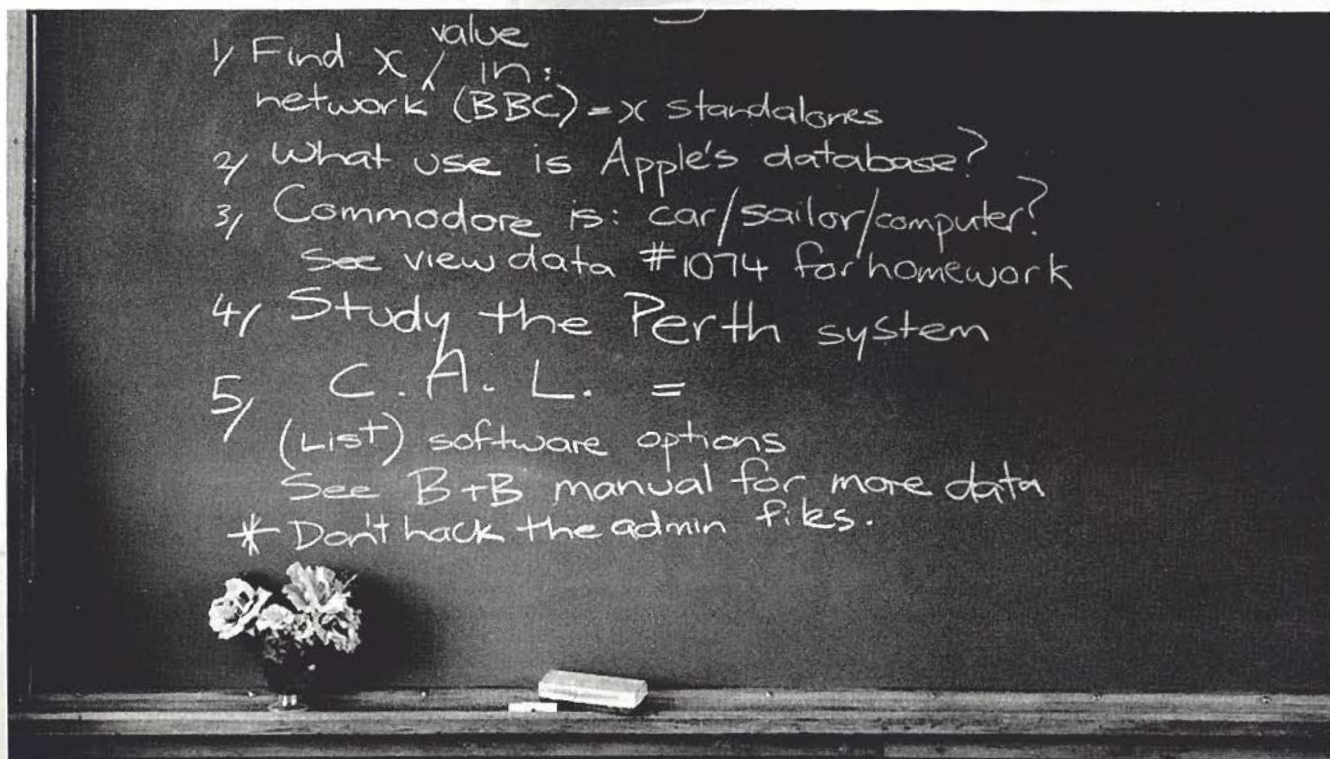 1/ Find x value in:
network (BBC) = x standalones
2/ What use is Apple's database?
3/ Commodore is: car/sailor/computer?
See viewdata #1074 for homework
4/ Study the Perth system
5/ C.A.L. =
(List) software options
See B+B manual for more data
* Don't hack the admin files.